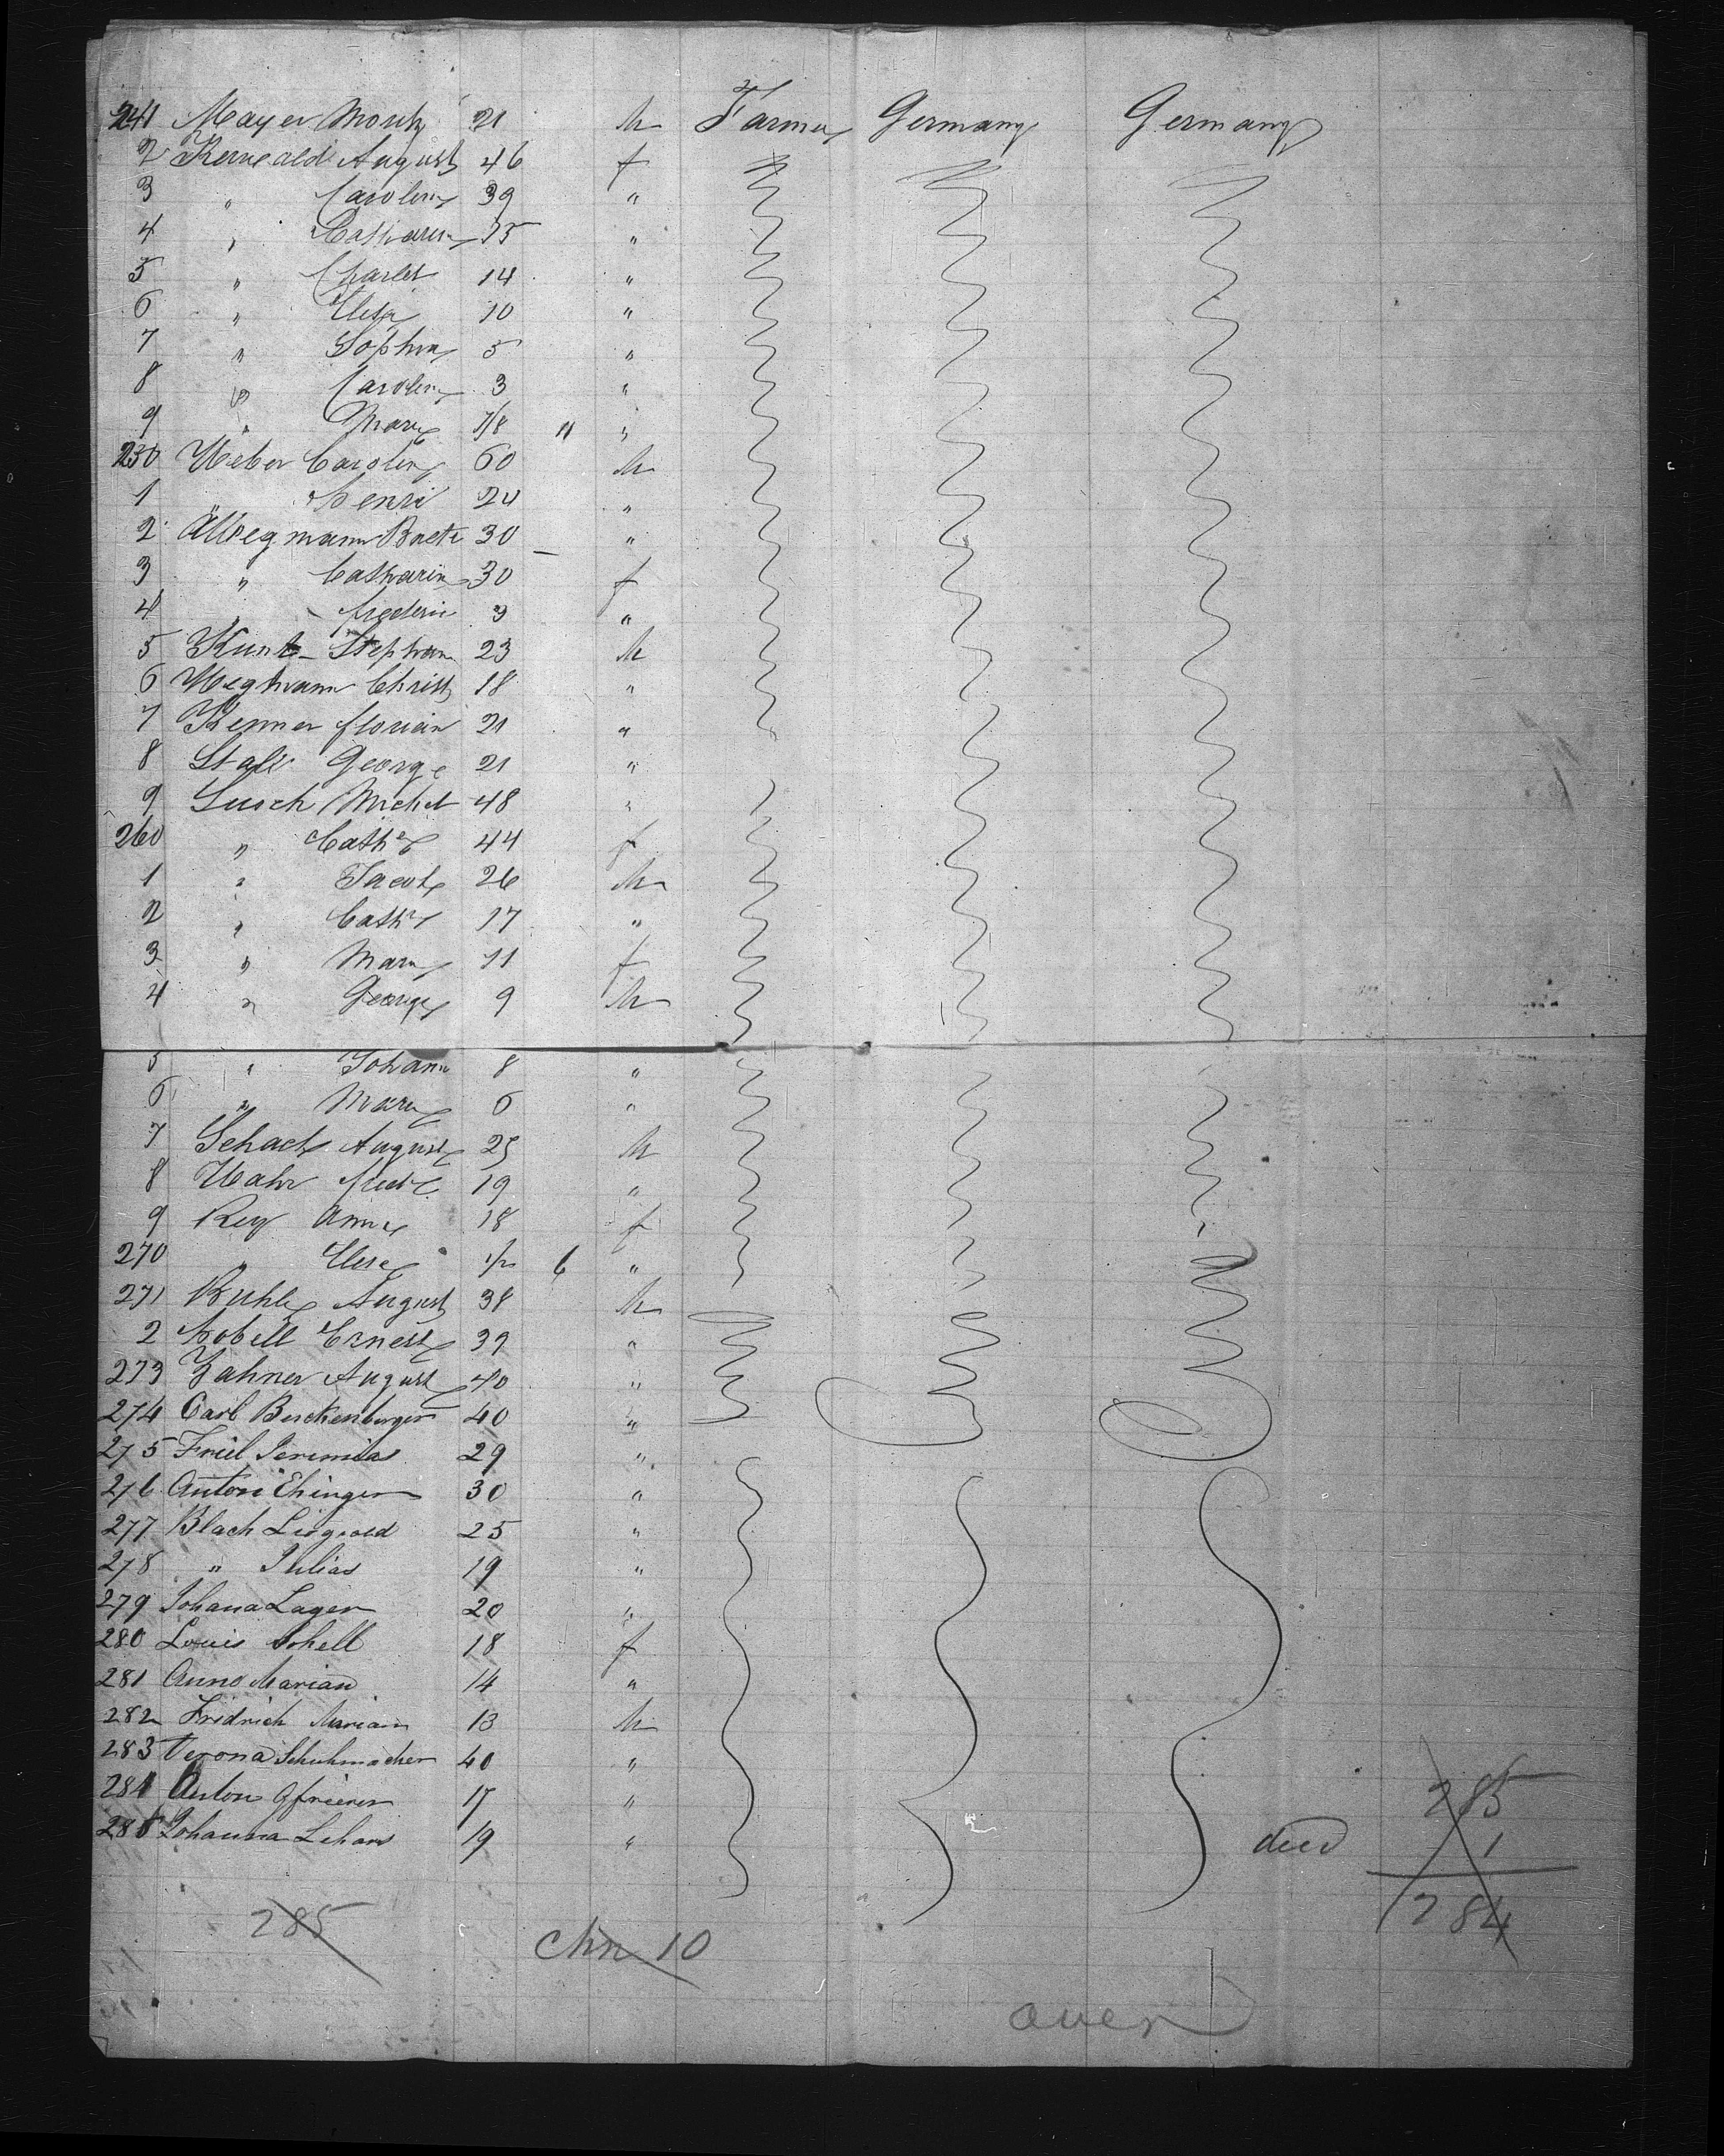 241 Mayer Moritz 21 M Farmer Germany Germany
2 August 46 f
3 " Carolin 39 "
4 " Catharin 15 "
5 " Charlet 14 "
6 " Elisa 10 "
7 " Sophia 5 "
8 " Carolin 3 "
9 " Mary 11 "
250 Weber Carolin 60 M
1 " Henri 24 "
2 30 "
3 " Catharin 30 f
4 " frederic 3 "
5 Kuntz Stephan 23 M
6 Wegmann Christ 18 "
7 Kenner florian 21 "
8 Stall George 21 "
9 Lusch Michel 48 "
260 " Cath 44 f
1 " Jacob 26 M
2 " Cath 17 "
3 " Mary 11 f
4 " George 9 M
5 " Johann 8 "
6 " Mary 6 "
7 Schack August 25 M
8 Hahn 19 "
9 Rey Anna 18 f
270 " Elise 6 "
271 Ruhle August 38 M
2 Hobell Ernest 39 "
273 Zahner August 40 "
274 Carl Beickenberger 40 "
275 Friel Jeremias 29 "
276 Anton Ehinger 30 "
277 Blach 25 "
278 " Julias 19 "
279 Johana Lager 20 "
280 Louis Schell 18 f
281 Anno Marian 14 "
282 Fridrich Marian 13 M
283 Verona Schuhmacher 40 "
284 Anton Gfrierer 17 "
285 Johanna Lehans 19 "
285
1
284
285
chn 10
over